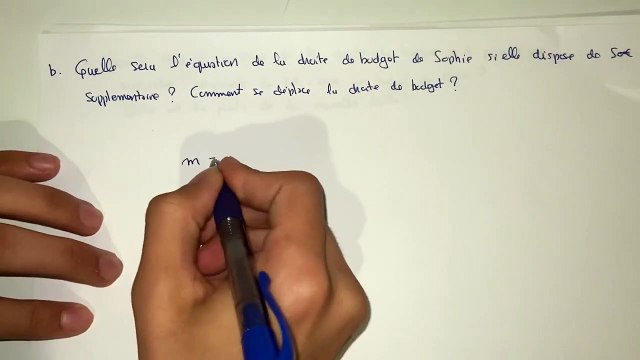 b. Quelle sera l'équation de la droite de budget de Sophie si elle dispose de 50€
supplementaire ? Comment se déplace la droite de budget ?
m =